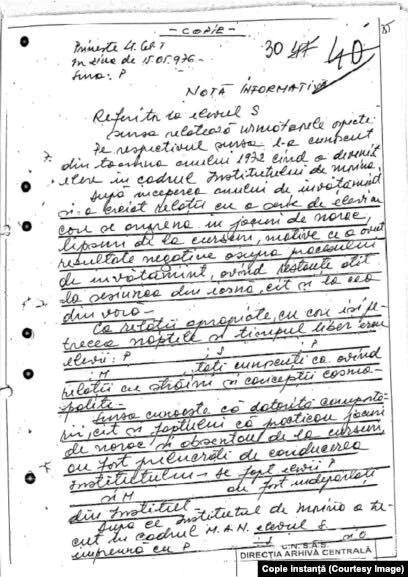 - COPIE -
Primește Lt. Col. T
În ziua de 15.05.976.
Sursa: P
30 47 40
NOTĂ INFORMATIVĂ
Referitor la elevul S
Sursa relatează următoarele aspecte:
Pe respectivul sursa l-a cunoscut
din toamna anului 1972 cînd a devenit
elev în cadrul Institutului de marină.
După începerea anului de învățămînt
și-a creiat relații cu o serie de elevi cu
care se angrena în jocuri de noroc,
lipsuri de la cursuri, motive ce a avut
rezultate negative asupra procesului
de învățămînt, avînd restanțe atît
la sesiunea din iarnă, cît și la cea
din vară.
Ca relații apropiate, cu care își pe-
trecea nopțile și timpul liber erau
elevii: P
M toți cunoscuți ca avînd
relații cu străini și concepții cosmo-
polite.
Sursa cunoaște că datorită comportă-
rii, cît și faptului că practicau jocuri
de noroc și absentau de la cursuri,
au fost prelucrați de conducerea
Institutului - se fapt elevii P
și M au fost îndepărtați
din Institut.
După ce Institutul de marină a tre-
cut în cadrul M.A.N. elevul S
împreună cu P
C.N.S.A.S.
DIRECȚIA ARHIVĂ CENTRALĂ
Copie instanță (Courtesy Image)